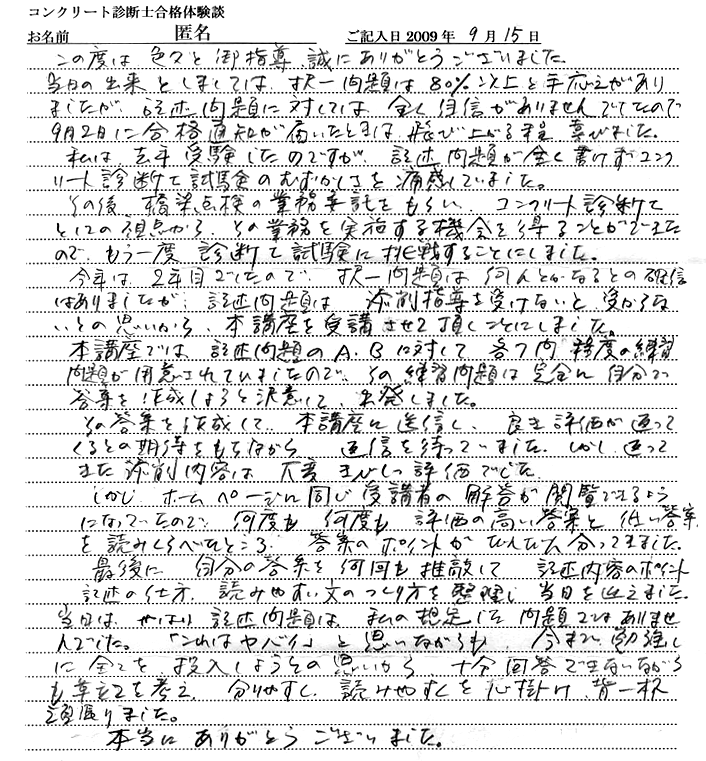 コンクリート診断士合格体験談
お名前 匿名 ご記入日 2009年 9月 15日
この度は 色々と 御指導 誠にありがとうございました。
当日の出来 としましては、択一問題は 80%以上と手応えがあり
ましたが、記述問題に対しては、全く自信がありませんでしたので
9月2日に合格通知が届いたときは、飛び上がる程 喜びました。
私は、去年 受験したのですが、記述問題が全く書けずコンク
リート診断士試験のむずかしさを 痛感していました。
その後、橋梁点検の業務委託をもらい、コンクリート診断士
としての視点から、その業務を実施する機会を得ることができた
ので、もう一度 診断士試験に挑戦することにしました。
今年は、2年目でしたので、択一問題は 何んとかなるとの確信
はありましたが、記述問題は 添削指導を受けないと 受からな
いとの思いから、本講座を受講させて頂くことにしました。
本講座では、記述問題のA、Bに対して 各7問 程度の練習
問題が用意されていましたので、その練習問題は完全に自分で
答案を作成しようと決意して、出発しました。
その答案を作成して、本講座に送信し、良い評価が返って
くるとの期待をもちながら 返信を待っていました。しかし、返って
きた 添削内容は、大変 きびしい評価でした。
しかし、ホームページに同じ受講者の 解答が 閲覧できるよう
になっていたので、何度も、何度も、評価の高い答案と 低い答案
を読みくらべたところ、答案のポイントがだんだん分ってきました。
最後に 自分の答案を何回も推敲して 記述内容のポイント
記述の仕方、読みやすい文のつくり方を整理し、当日を迎えました。
当日は、やはり 記述問題は、私の想定した 問題ではありませ
んでした。「これはヤバイ」と思いながらも、今まで 勉強し
に 全てを 投入しようとの思いから、十分 回答できないながら
も 章立てを考え、分りやすく、読みやすくを心掛け、背一杯
頑張りました。
本当に ありがとう ございました。